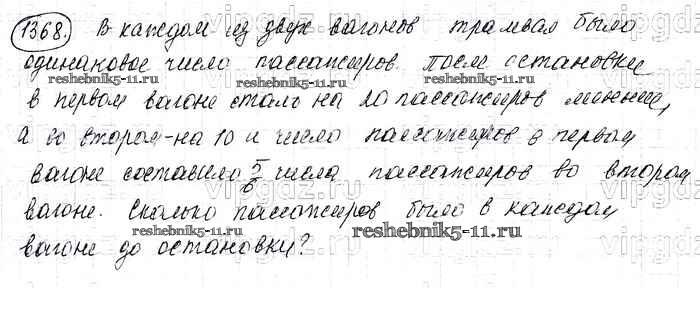 1368. В каждом из двух вагонов трамвая было
одинаковое число пассажиров. После остановки
reshebnik5-11.ru reshebnik5-11.ru
в первом вагоне стало на 20 пассажиров меньше,
а во втором - на 10 и число пассажиров в первом
vipgdz.ru vipgdz.ru vipgdz.ru
вагоне составило 5/6 числа пассажиров во втором
вагоне. Сколько пассажиров было в каждом
reshebnik5-11.ru reshebnik5-11.ru
вагоне до остановки?
vipgdz.ru vipgdz.ru vipgdz.ru